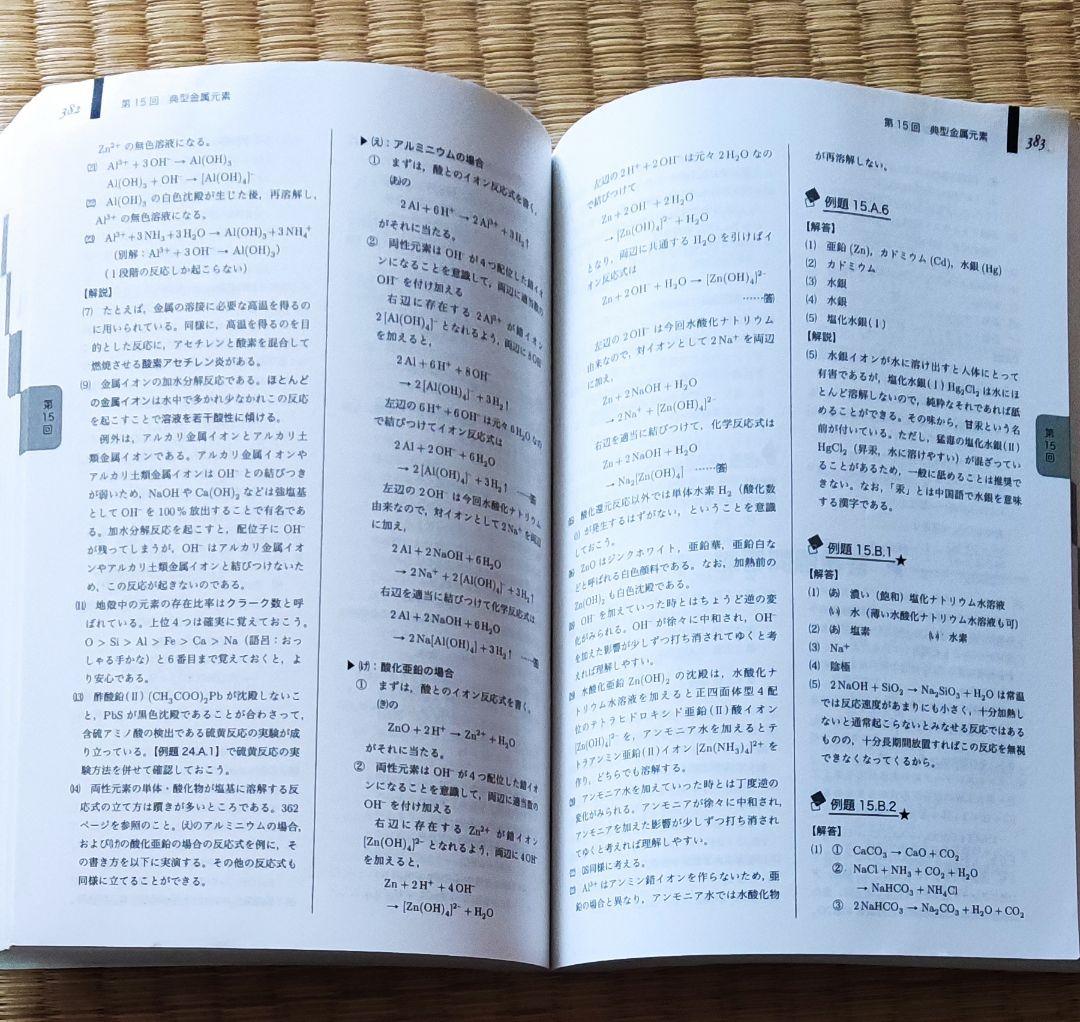 382 第15回 典型金属元素
Zn²⁺ の無色溶液になる。
(21) Al³⁺ + 3OH⁻ → Al(OH)₃
Al(OH)₃ + OH⁻ → [Al(OH)₄]⁻
(22) Al(OH)₃ の白色沈殿が生じた後，再溶解し，
Al³⁺ の無色溶液になる。
(23) Al³⁺ + 3NH₃ + 3H₂O → Al(OH)₃ + 3NH₄⁺
(別解：Al³⁺ + 3OH⁻ → Al(OH)₃)
(1段階の反応しか起こらない)
【解説】
(7) たとえば，金属の溶接に必要な高温を得るの
に用いられている。同様に，高温を得るのを目
的とした反応に，アセチレンと酸素を混合して
燃焼させる酸素アセチレン炎がある。
(9) 金属イオンの加水分解反応である。ほとんど
の金属イオンは水中で多かれ少なかれこの反応
を起こすことで溶液を若干酸性に傾ける。
例外は，アルカリ金属イオンとアルカリ土
類金属イオンである。アルカリ金属イオンや
アルカリ土類金属イオンは OH⁻ との結びつき
が弱いため，NaOH や Ca(OH)₂ などは強塩基
として OH⁻ を 100% 放出することで有名であ
る。加水分解反応を起こすと，配位子に OH⁻
が残ってしまうが，OH⁻ はアルカリ金属イオ
ンやアルカリ土類金属イオンと結びつけないた
め，この反応が起きないのである。
(11) 地殻中の元素の存在比率はクラーク数と呼
ばれている。上位4つは確実に覚えておこう。
O > Si > Al > Fe > Ca > Na (語呂：おっ
しゃる手かな) と6番目まで覚えておくと，よ
り安心である。
(13) 酢酸鉛(II) (CH₃COO)₂Pb が沈殿しないこ
と，PbS が黒色沈殿であることが合わさって，
含硫アミノ酸の検出である硫黄反応の実験が成
り立っている。【例題 24.A.1】で硫黄反応の実
験方法を併せて確認しておこう。
(14) 両性元素の単体・酸化物が塩基に溶解する反
応式の立て方は躓きが多いところである。362
ページを参照のこと。(え)のアルミニウムの場合，
および(け)の酸化亜鉛の場合の反応式を例に，そ
の書き方を以下に実演する。その他の反応式も
同様に立てることができる。
第15回
▶(え)：アルミニウムの場合
① まずは，酸とのイオン反応式を書く。
(あ)の
2Al + 6H⁺ → 2Al³⁺ + 3H₂↑
がそれに当たる。
② 両性元素は OH⁻ が4つ配位した錯イオ
ンになることを意識して，両辺に適当数の
OH⁻ を付け加える
右辺に存在する 2Al³⁺ が錯イオン
2[Al(OH)₄]⁻ となれるよう，両辺に 8OH⁻
を加えると，
2Al + 6H⁺ + 8OH⁻
→ 2[Al(OH)₄]⁻ + 3H₂↑
左辺の 6H⁺ + 6OH⁻ は元々 6H₂O なの
で結びつけてイオン反応式は
2Al + 2OH⁻ + 6H₂O
→ 2[Al(OH)₄]⁻ + 3H₂↑ ……答
左辺の 2OH⁻ は今回水酸化ナトリウム
由来なので，対イオンとして 2Na⁺ を両辺
に加え，
2Al + 2NaOH + 6H₂O
→ 2Na⁺ + 2[Al(OH)₄]⁻ + 3H₂↑
右辺を適当に結びつけて化学反応式は
2Al + 2NaOH + 6H₂O
→ 2Na[Al(OH)₄] + 3H₂↑ ……答
▶(け)：酸化亜鉛の場合
① まずは，酸とのイオン反応式を書く。
(き)の
ZnO + 2H⁺ → Zn²⁺ + H₂O
がそれに当たる。
② 両性元素は OH⁻ が4つ配位した錯イオ
ンになることを意識して，両辺に適当数の
OH⁻ を付け加える
右辺に存在する Zn²⁺ が錯イオン
[Zn(OH)₄]²⁻ となれるよう，両辺に 4OH⁻
を加えると，
Zn + 2H⁺ + 4OH⁻
→ [Zn(OH)₄]²⁻ + H₂O
第15回 典型金属元素 383
左辺の 2H⁺ + 2OH⁻ は元々 2H₂O なの
で結びつけて
Zn + 2OH⁻ + 2H₂O
→ [Zn(OH)₄]²⁻ + H₂O
となり，両辺に共通する H₂O を引けばイ
オン反応式は
Zn + 2OH⁻ + H₂O → [Zn(OH)₄]²⁻
……答
左辺の 2OH⁻ は今回水酸化ナトリウム
由来なので，対イオンとして 2Na⁺ を両辺
に加え，
Zn + 2NaOH + H₂O
→ 2Na⁺ + [Zn(OH)₄]²⁻
右辺を適当に結びつけて，化学反応式は
Zn + 2NaOH + H₂O
→ Na₂[Zn(OH)₄] ……答
酸化還元反応以外では単体水素 H₂ (酸化数
0) が発生するはずがない，ということを意識
しておこう。
ZnO はジンクホワイト，亜鉛華，亜鉛白な
どと呼ばれる白色顔料である。なお，加熱前の
Zn(OH)₂ も白色沈殿である。
OH⁻ を加えていった時とはちょうど逆の変
化がみられる。OH⁻ が徐々に中和され，OH⁻
を加えた影響が少しずつ打ち消されてゆくと考
えれば理解しやすい。
水酸化亜鉛 Zn(OH)₂ の沈殿は，水酸化ナ
トリウム水溶液を加えると正四面体型4配
位のテトラヒドロキシド亜鉛(II)酸イオン
[Zn(OH)₄]²⁻ を，アンモニア水を加えるとテ
トラアンミン亜鉛(II)イオン [Zn(NH₃)₄]²⁺ を
作り，どちらでも溶解する。
アンモニア水を加えていった時とは丁度逆の
変化がみられる。アンモニアが徐々に中和され，
アンモニアを加えた影響が少しずつ打ち消され
てゆくと考えれば理解しやすい。
同様に考える。
Al³⁺ はアンミン錯イオンを作らないため，亜
鉛の場合と異なり，アンモニア水では水酸化物
が再溶解しない。
例題 15.A.6
【解答】
(1) 亜鉛(Zn)，カドミウム(Cd)，水銀(Hg)
(2) カドミウム
(3) 水銀
(4) 水銀
(5) 塩化水銀(I)
【解説】
(5) 水銀イオンが水に溶け出すと人体にとって
有害であるが，塩化水銀(I) Hg₂Cl₂ は水にほ
とんど溶解しないので，純粋なそれであれば舐
めることができる。その味から，甘汞という名
前が付いている。ただし，猛毒の塩化水銀(II)
HgCl₂ (昇汞，水に溶けやすい) が混ざってい
ることがあるため，一般に舐めることは推奨で
きない。なお，「汞」とは中国語で水銀を意味
する漢字である。
例題 15.B.1★
【解答】
(1) (あ) 濃い (飽和) 塩化ナトリウム水溶液
(い) 水 (薄い水酸化ナトリウム水溶液も可)
(2) (あ) 塩素 (い) 水素
(3) Na⁺
(4) 陰極
(5) 2NaOH + SiO₂ → Na₂SiO₃ + H₂O は常温
では反応速度があまりにも小さく，十分加熱し
ないと通常起こらないとみなせる反応ではある
ものの，十分長期間放置すればこの反応を無視
できなくなってくるから。
例題 15.B.2★
【解答】
(1) ① CaCO₃ → CaO + CO₂
② NaCl + NH₃ + CO₂ + H₂O
→ NaHCO₃ + NH₄Cl
③ 2NaHCO₃ → Na₂CO₃ + H₂O + CO₂
第15回